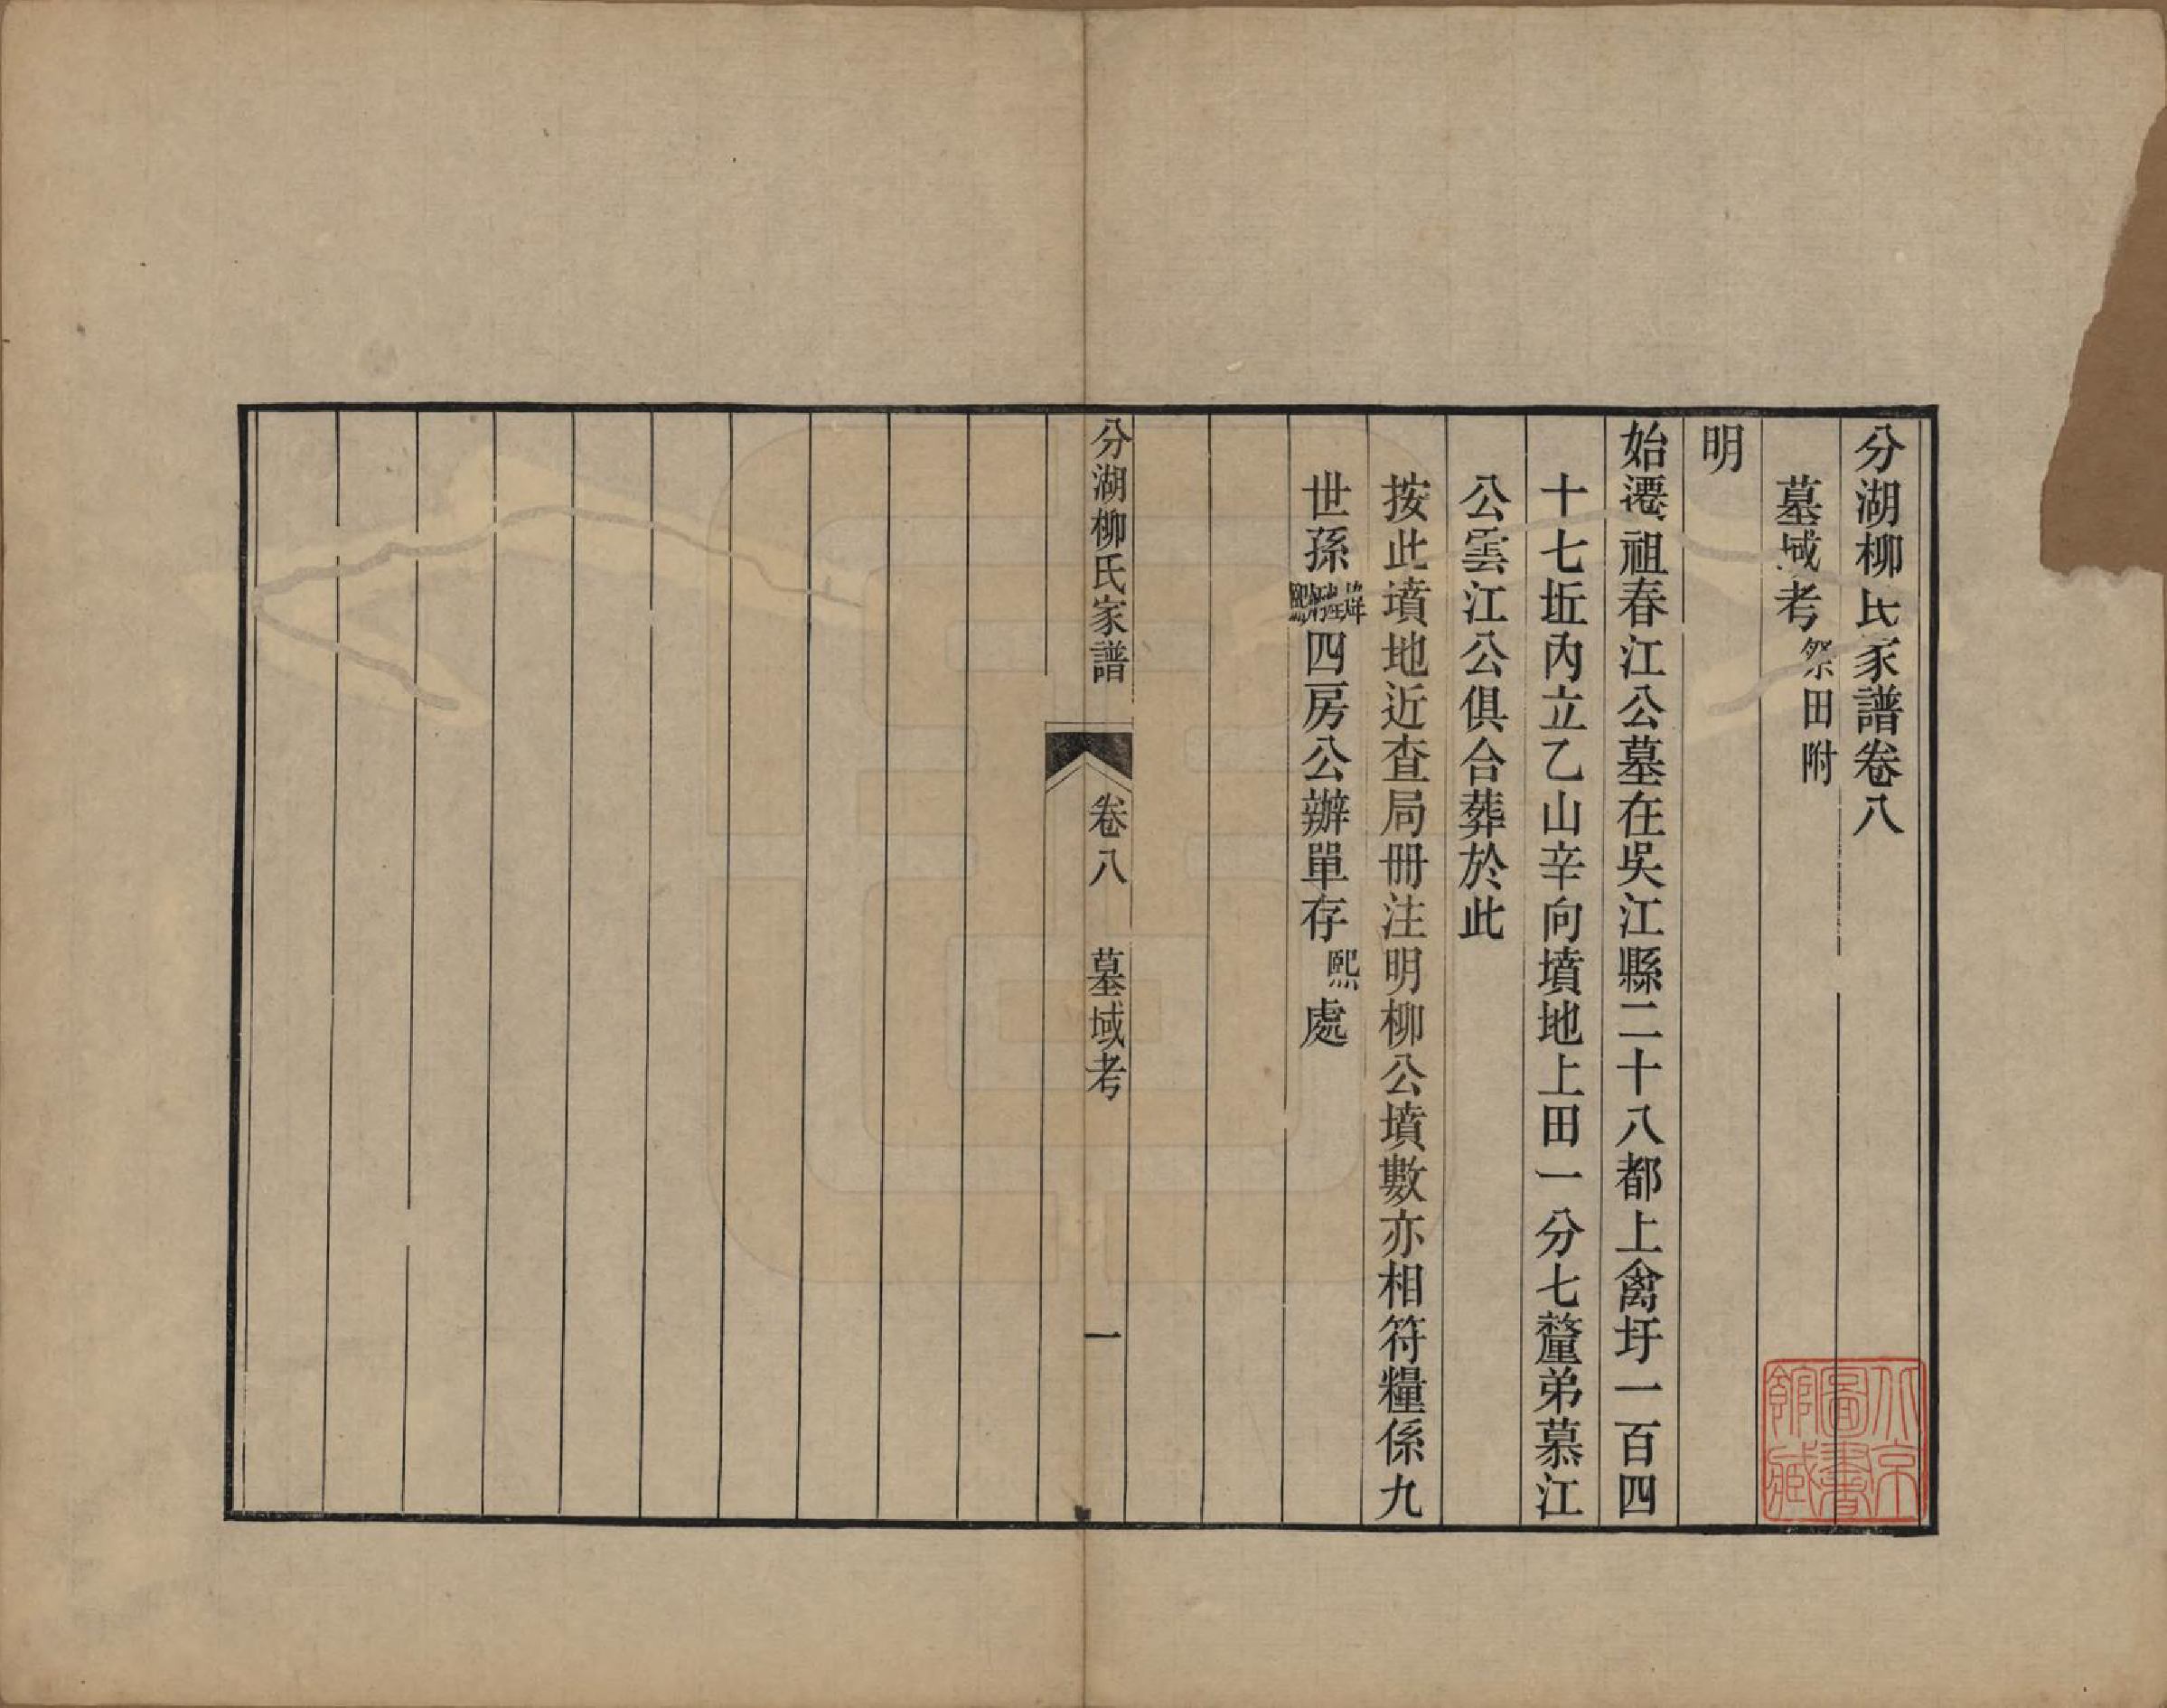 分湖柳氏家譜卷八
墓域考祭田附
明
始遷祖春江公墓在吳江縣二十八都上禽圩一百四
十七坵內立乙山辛向墳地上田一分七釐弟慕江
公雲江公俱合葬於此
按此墳地近查局冊注明柳公墳數亦相符糧係九
世孫四房公辦單存熙處
分湖柳氏家譜
卷八
墓域考
一
北京
圖書
館藏